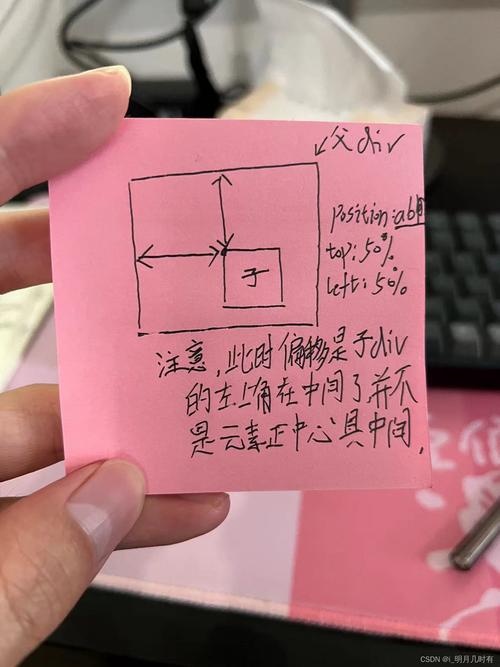 父div
position:ab
top:50%
left:50%
子
注意,此时偏移是子div
的左上角在中间了并不
是元素正中心具中间.
CSDN @i_明月几时有